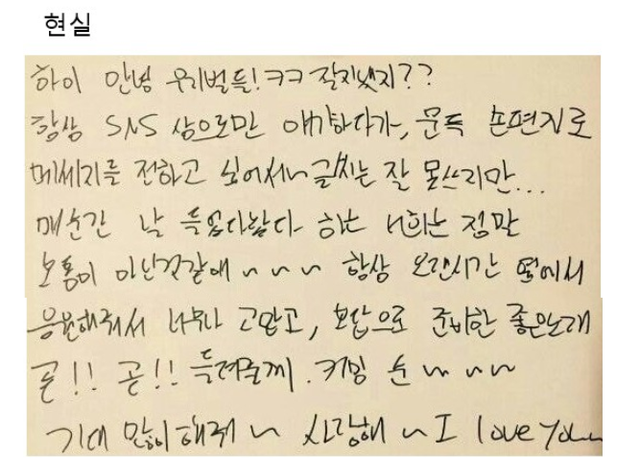 현실
하이 안녕 우리벌들! ㅋㅋ 잘지냈지??
항상 SNS 상으로만 얘기하다가, 문득 손편지로
메세지를 전하고 싶어서~ 글씨는 잘 못쓰지만...
매순간 날 들었다놨다 하는 너희는 정말
보통이 아닌것같애 ~ ~ ~ 항상 오랜시간 옆에서
응원해줘서 너무나 고맙고, 보답으로 준비한 좋은노래
곧!! 곧!! 들려줄께. 커밍 순 ~ ~ ~
기대 많이해줘 ~ 사랑해 ~ I love You~